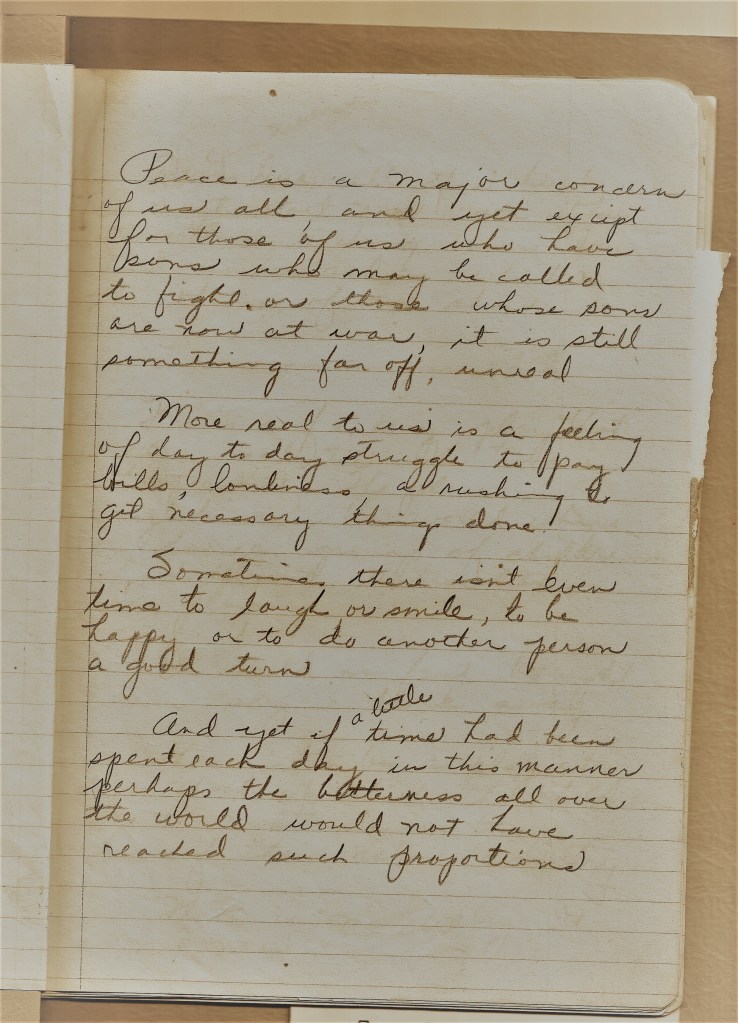 Peace is a major concern
of us all, and yet except
for those of us who have
sons who may be called
to fight, or those whose sons
are now at war, it is still
something far off, unreal
More real to us is a feeling
of day to day struggle to pay
bills, lonliness, a rushing to
get necessary things done.
Sometimes there isn't even
time to laugh or smile, to be
happy or to do another person
a good turn
And yet if a little time had been
spent each day in this manner
perhaps the bitterness all over
the world would not have
reached such proportions